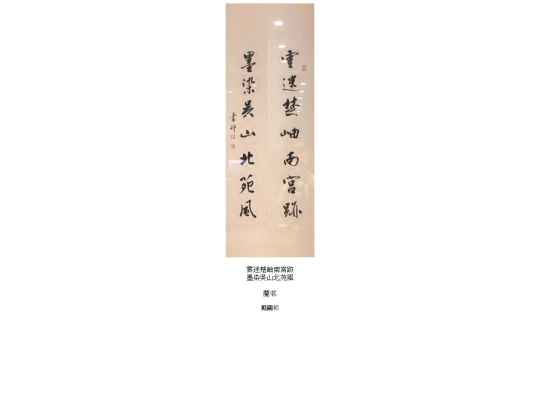 雲迷楚岫南宮跡
墨染吳山北苑風
雲迷楚岫南宮跡
墨染吳山北苑風